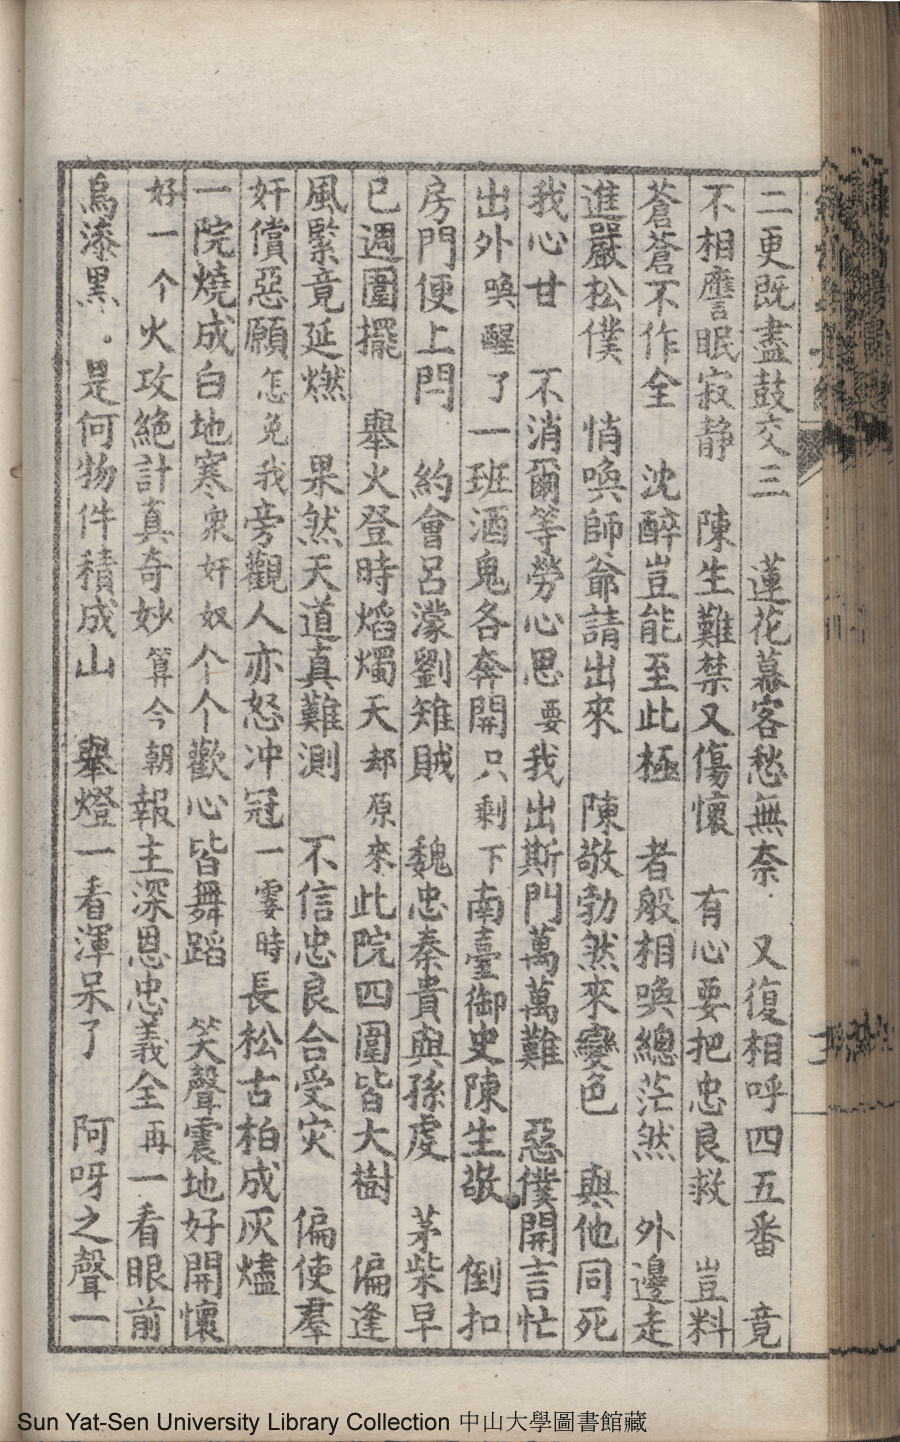 二更既盡鼓交三　蓮花幕客愁無奈　又復相呼四五番　竟
不相譍眠寂静　陳生難禁又傷懷　有心要把忠良救　豈料
蒼蒼不作全　沈醉豈能至此極　者般相喚總茫然　外邊走
進嚴松僕　悄喚師爺請出來　陳敬勃然來變色　與他同死
我心甘　不消爾等勞心思要我出斯門萬萬難　惡僕開言忙
出外喚醒了一班酒鬼各奔開只剩下南臺御史陳生敬　倒扣
房門便上閂　約會呂濛劉雉賊　魏忠秦貴與孫虔　茅柴早
已週圍擺　舉火登時熖燭天却原來此院四圍皆大樹　偏逢
風緊竟延燃　果然天道真難測　不信忠良合受灾　偏使羣
奸償惡願怎免我旁觀人亦怒冲冠一霎時長松古柏成灰燼
一院燒成白地寒衆奸奴个个歡心皆舞蹈　笑聲震地好開懷
好一个火攻絶計真奇妙算今朝報主深恩忠義全再一看眼前
烏漆黑．是何物件積成山　舉燈一看渾呆了　阿呀之聲一
Sun Yat-Sen University Library Collection 中山大學圖書館藏